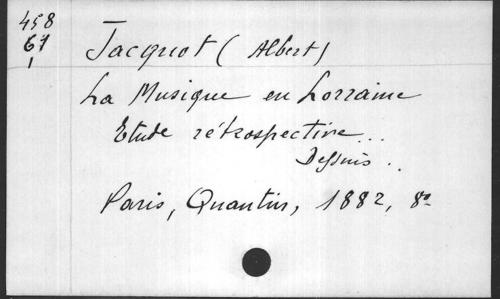 458
67
1
Jacquot (Albert)
La Musique en Lorraine
Etude rétrospective...
Dessins..
Paris, Quantin, 1882, 8º